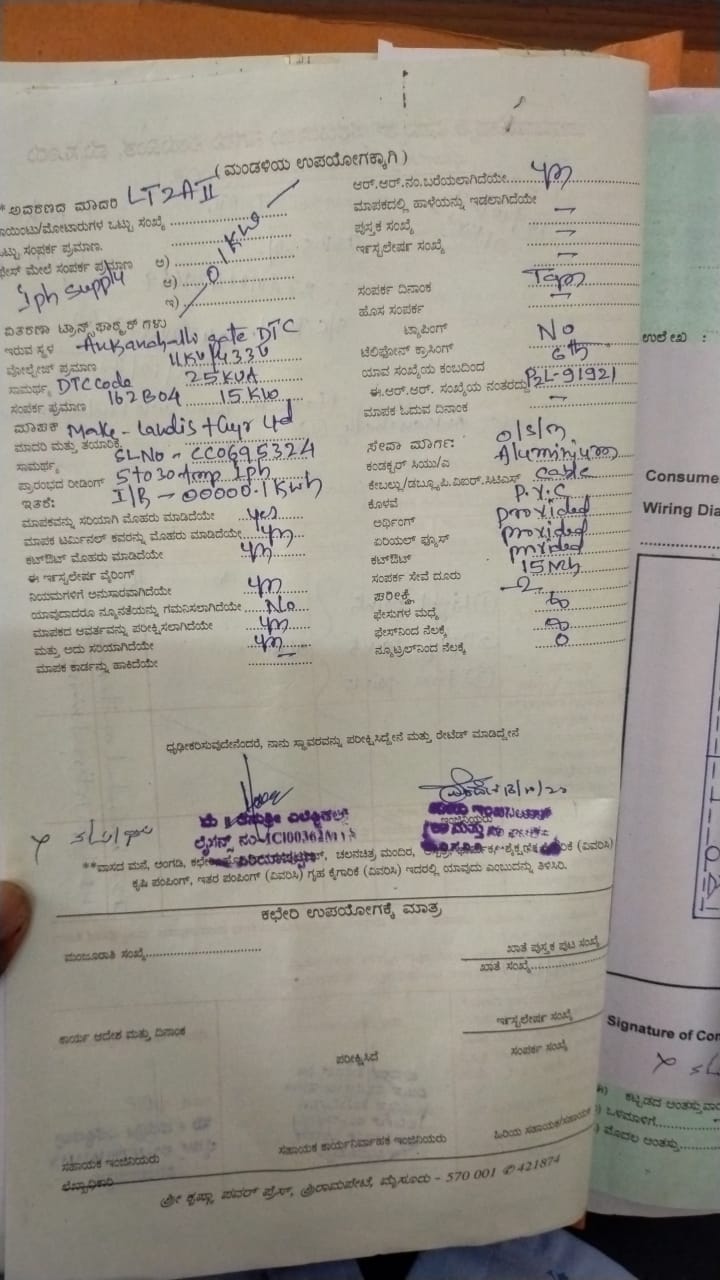 (ಮಂಡಳಿಯ ಉಪಯೋಗಕ್ಕಾಗಿ)
*ಆವರಣದ ಮಾದರಿ LT2A II
ಪಾಯಿಂಟು/ಮೋಟಾರುಗಳ ಒಟ್ಟು ಸಂಖ್ಯೆ
ಒಟ್ಟು ಸಂಪರ್ಕ ಪ್ರಮಾಣ.
ಫೇಸ್ ಮೇಲೆ ಸಂಪರ್ಕ ಪ್ರಮಾಣ ಅ)
1ph supply ಆ) 1KW
ಇ)
ವಿತರಣಾ ಟ್ರಾನ್ಸ್‌ಫಾರ್ಮರ್ ಗಳು
ಇರುವ ಸ್ಥಳ gate DTC
ವೋಲ್ಟೇಜ್ ಪ್ರಮಾಣ 11KV/433V
ಸಾಮರ್ಥ್ಯ DTC code 25KVA
ಸಂಪರ್ಕ ಪ್ರಮಾಣ 162804 15KW
ಮಾಪಕ Make - Landis + Gyr Ltd
ಮಾದರಿ ಮತ್ತು ತಯಾರಿಕೆ
ಸಾಮರ್ಥ್ಯ SL No - CC0695324
ಪ್ರಾರಂಭದ ರೀಡಿಂಗ್ 5 to 30 Amp 1ph
ಇತಕೆ: I/R - 00000.1 Kwh
ಮಾಪಕವನ್ನು ಸರಿಯಾಗಿ ಮೊಹರು ಮಾಡಿದೆಯೇ yes
ಮಾಪಕ ಟರ್ಮಿನಲ್ ಕವರನ್ನು ಮೊಹರು ಮಾಡಿದೆಯೇ
ಕಟ್‌ಔಟ್ ಮೊಹರು ಮಾಡಿದೆಯೇ
ಈ ಇನ್ಸ್ಟಲೇಷನ್ ವೈರಿಂಗ್
ನಿಯಮಗಳಿಗೆ ಅನುಸಾರವಾಗಿದೆಯೇ
ಯಾವುದಾದರೂ ನ್ಯೂನತೆಯನ್ನು ಗಮನಿಸಲಾಗಿದೆಯೇ No
ಮಾಪಕದ ಆವರ್ತವನ್ನು ಪರೀಕ್ಷಿಸಲಾಗಿದೆಯೇ
ಮತ್ತು ಅದು ಸರಿಯಾಗಿದೆಯೇ
ಮಾಪಕ ಕಾರ್ಡನ್ನು ಹಾಕಿದೆಯೇ
ಆರ್.ಆರ್.ನಂ.ಬರೆಯಲಾಗಿದೆಯೇ
ಮಾಪಕದಲ್ಲಿ ಹಾಳೆಯನ್ನು ಇಡಲಾಗಿದೆಯೇ
ಪುಸ್ತಕ ಸಂಖ್ಯೆ
ಇನ್ಸ್ಟಲೇಷನ್ ಸಂಖ್ಯೆ
ಸಂಪರ್ಕ ದಿನಾಂಕ
ಹೊಸ ಸಂಪರ್ಕ
ಟ್ಯಾಪಿಂಗ್
ಟೆಲಿಫೋನ್ ಕ್ರಾಸಿಂಗ್ No
ಯಾವ ಸಂಖ್ಯೆಯ ಕಂಬದಿಂದ 6th
ಈ.ಆರ್.ಆರ್. ಸಂಖ್ಯೆಯ ನಂತರದ್ದು P2L-91921
ಮಾಪಕ ಓದುವ ದಿನಾಂಕ
ಸೇವಾ ಮಾರ್ಗ:
ಕಂಡಕ್ಟರ್ ಸಿಯು/ಎ Aluminium
ಕೇಬಲ್ಲು/ಡಬ್ಲ್ಯೂ.ಪಿ.ವಿಐಆರ್.ಸಿಟಿಎಸ್ Cable
ಕೊಳವೆ P.V.C
ಅರ್ಥಿಂಗ್ provided
ಏರಿಯಲ್ ಫ್ಯೂಸ್ provided
ಕಟ್‌ಔಟ್ provided
ಸಂಪರ್ಕ ಸೇವೆ ದೂರು 15
ಪರೀಕ್ಷೆ
ಫೇಸುಗಳ ಮಧ್ಯೆ
ಫೇಸ್‌ನಿಂದ ನೆಲಕ್ಕೆ
ನ್ಯೂಟ್ರಲ್‌ನಿಂದ ನೆಲಕ್ಕೆ
ಧೃಢೀಕರಿಸುವುದೇನೆಂದರೆ, ನಾನು ಸ್ಥಾವರವನ್ನು ಪರೀಕ್ಷಿಸಿದ್ದೇನೆ ಮತ್ತು ರೇಟೆಡ್ ಮಾಡಿದ್ದೇನೆ
**ವಾಸದ ಮನೆ, ಅಂಗಡಿ, ಚಲನಚಿತ್ರ ಮಂದಿರ, (ವಿವರಿಸಿ)
ಕೃಷಿ ಪಂಪಿಂಗ್, ಇತರ ಪಂಪಿಂಗ್ (ವಿವರಿಸಿ) ಗೃಹ ಕೈಗಾರಿಕೆ (ವಿವರಿಸಿ) ಇದರಲ್ಲಿ ಯಾವುದು ಎಂಬುದನ್ನು ತಿಳಿಸಿರಿ.
ಕಛೇರಿ ಉಪಯೋಗಕ್ಕೆ ಮಾತ್ರ
ಮಂಜೂರಾತಿ ಸಂಖ್ಯೆ
ಖಾತೆ ಪುಸ್ತಕ ಪುಟ ಸಂಖ್ಯೆ
ಖಾತೆ ಸಂಖ್ಯೆ
ಕಾರ್ಯ ಆದೇಶ ಮತ್ತು ದಿನಾಂಕ
ಇನ್ಸ್ಟಲೇಷನ್ ಸಂಖ್ಯೆ
ಪರೀಕ್ಷಿಸಿದೆ
ಸಂಪರ್ಕ ಸಂಖ್ಯೆ
ಸಹಾಯಕ ಇಂಜಿನಿಯರು
ಸಹಾಯಕ ಕಾರ್ಯನಿರ್ವಾಹಕ ಇಂಜಿನಿಯರು
ಹಿರಿಯ ಸಹಾಯಕ/ಸಹಾಯಕ
ಲೆಖ್ಖಾಧಿಕಾರಿ
ಶ್ರೀ ಕೃಷ್ಣಾ ಪವರ್ ಪ್ರೆಸ್, ಶ್ರೀರಾಮಪೇಟೆ, ಮೈಸೂರು - 570 001 ✆ 421874
ಉಲೇಖ :
Consume
Wiring Dia
Signature of Con
ಕಟ್ಟಡದ ಅಂತಸ್ತುವಾ
ಒಳಮಾಳಿಗೆ
ಮೊದಲ ಅಂತಸ್ತು